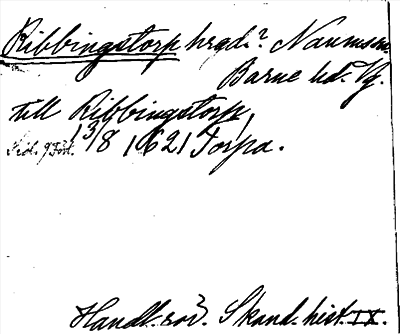 Ribbingstorp hrgd.? Naumsm
Barne hd. Vg.
till Ribbingstorp,
13/8 1621 Torpa.
Handl. rör. Skand. hist. IX.